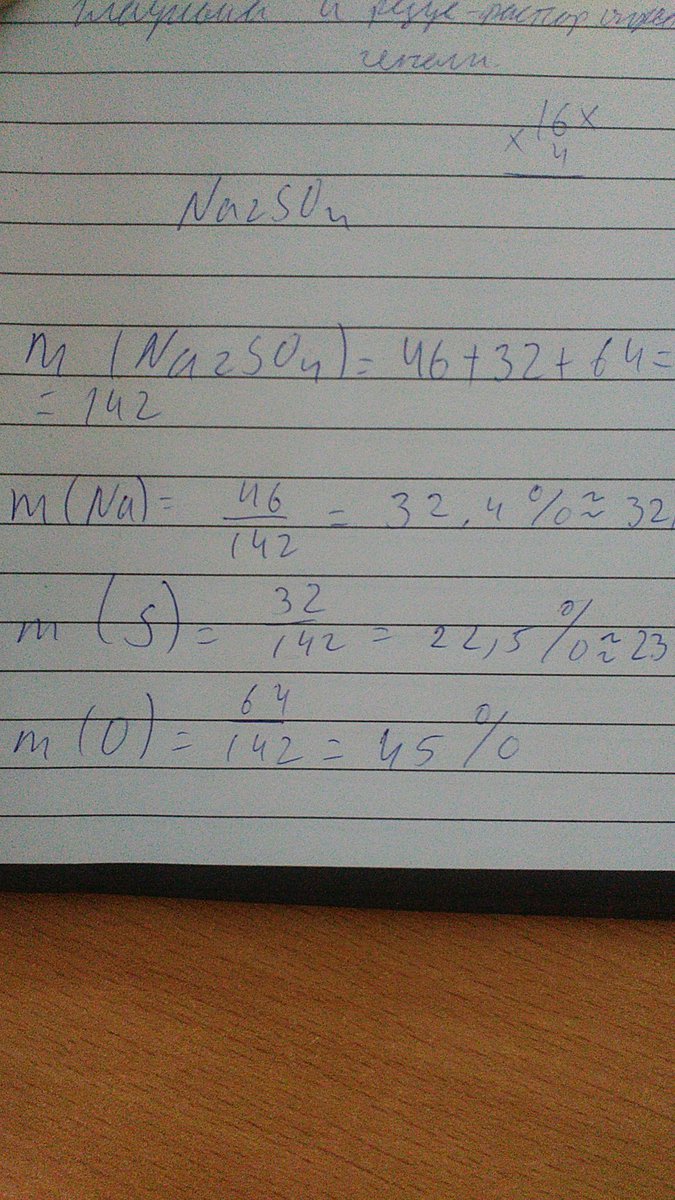 и резус-фактор
× 16 ×
4
Na2SO4
m (Na2SO4) = 46 + 32 + 64 =
= 142
m (Na) = 46/142 = 32,4 % ≈ 32
m (S) = 32/142 = 22,5 % ≈ 23
m (O) = 64/142 = 45 %